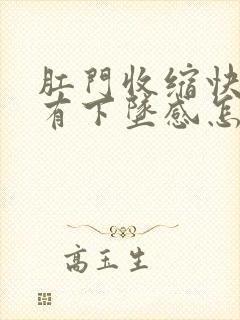 肛門收缩快
有下墜感怎
高玉生